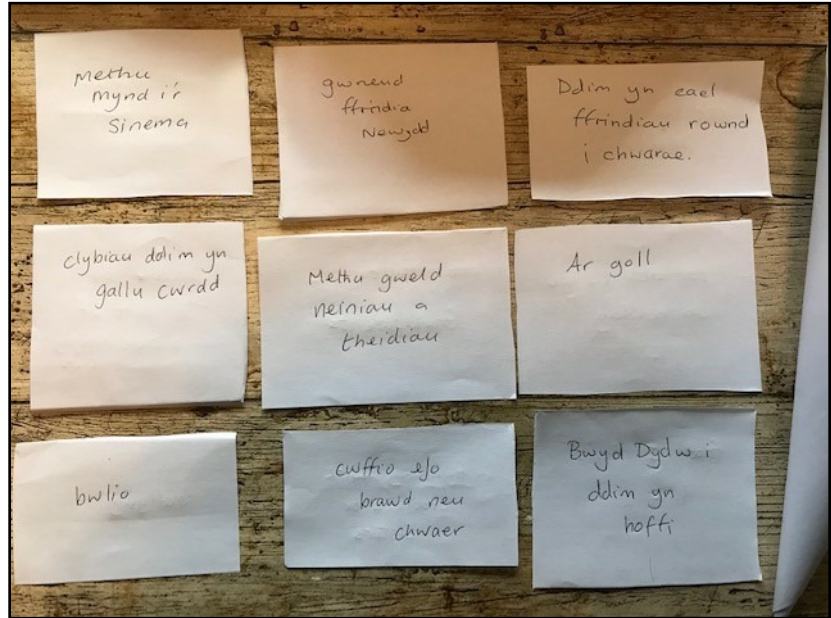 Methu
mynd i'r
Sinema
gwneud
ffrindia
Newydd
Ddim yn cael
ffrindiau rownd
i chwarae.
clybiau ddim yn
gallu cwrdd
Methu gweld
neiniau a
theidiau
Ar goll
bwlio
cwffio efo
brawd neu
chwaer
Bwyd Dydw i
ddim yn
hoffi